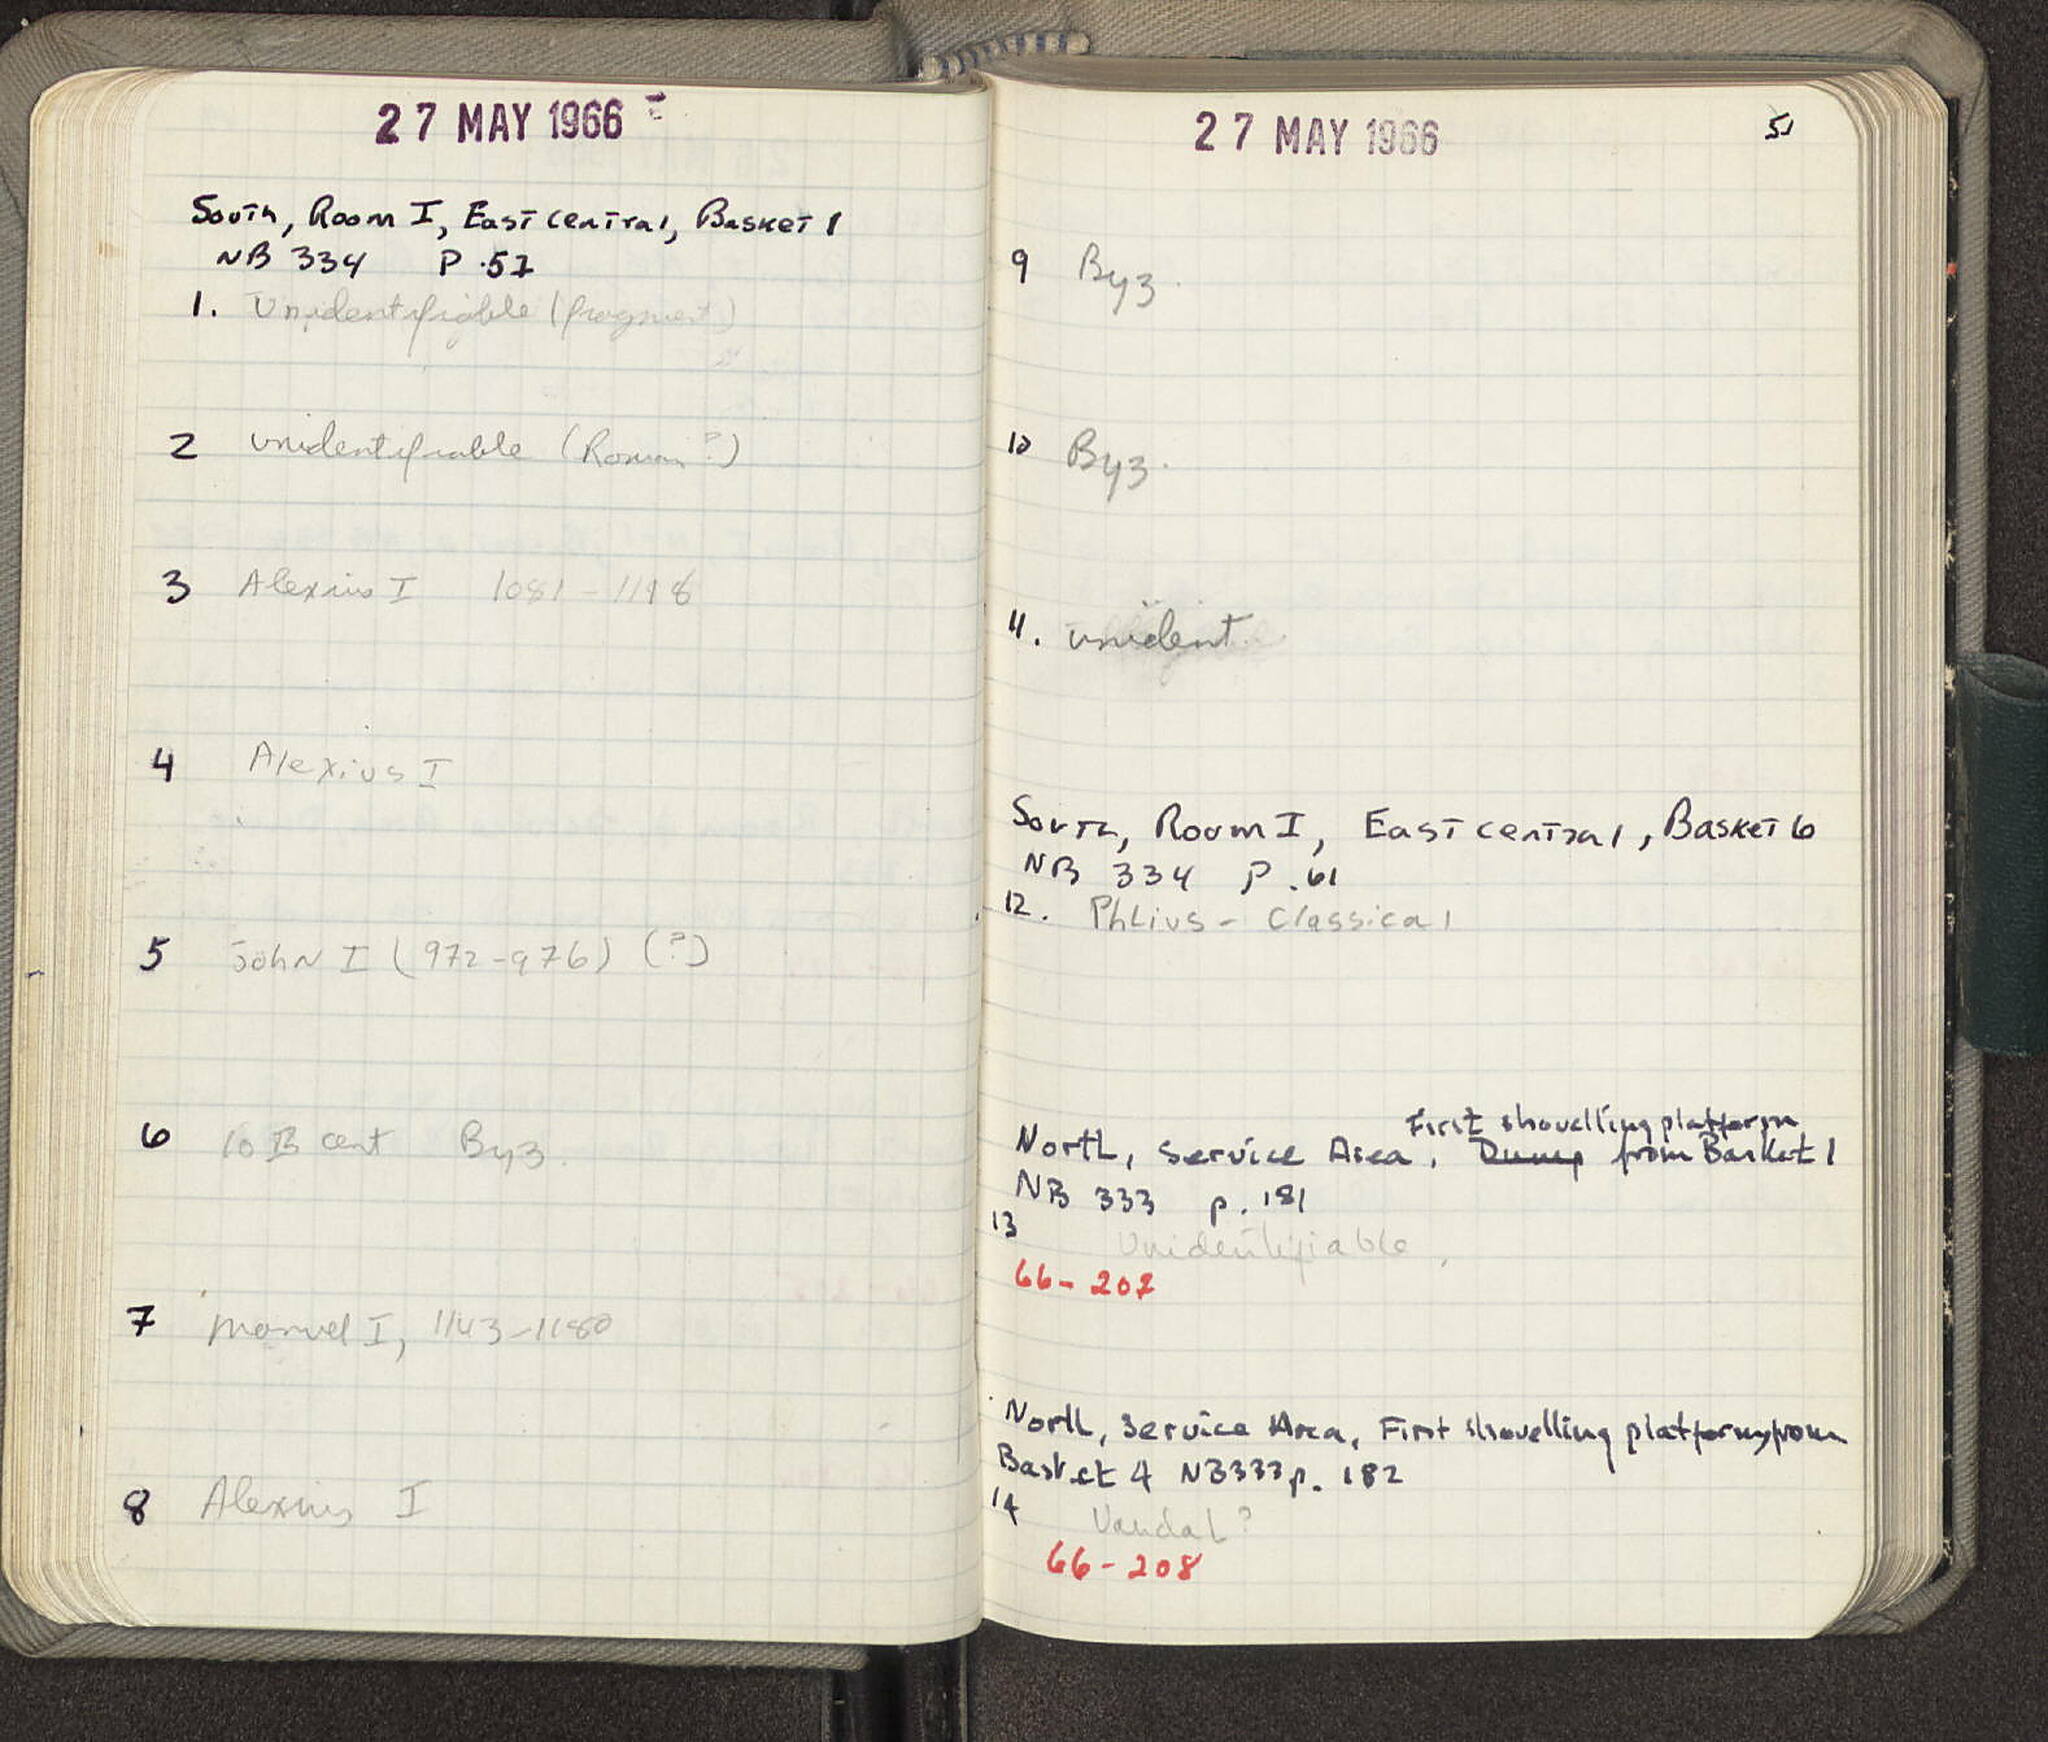 27 MAY 1966
South, Room I, East central, Basket 1
NB 334 P.57
1. Unidentifiable (fragment)
2 unidentifiable (Roman?)
3 Alexius I 1081-1118
4 Alexius I
5 John I (972-976) (?)
6 10 cent Byz.
7 Manuel I, 1143-1180
8 Alexius I
27 MAY 1966
51
9 Byz.
10 Byz.
11. unident.
South, Room I, East central, Basket 6
NB 334 P.61
12. Phlius - Classical
First shovelling platform
North, Service Area, Dump from Basket 1
NB 333 p. 181
13
Unidentifiable
66-207
North, Service Area, First shovelling platform, from
Basket 4 NB333 p. 182
14
Vandal?
66-208